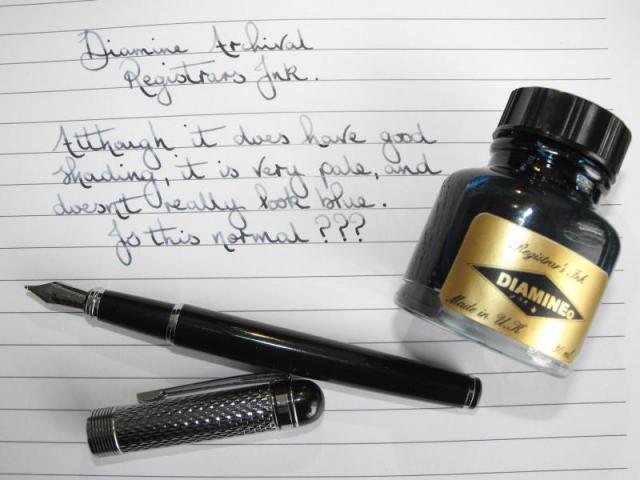 Diamine Archival
Registrars Ink.
Although it does have good
shading, it is very pale, and
doesn't really look blue.
Is this normal ???
Registrar's Ink
DIAMINE
Made in U.K